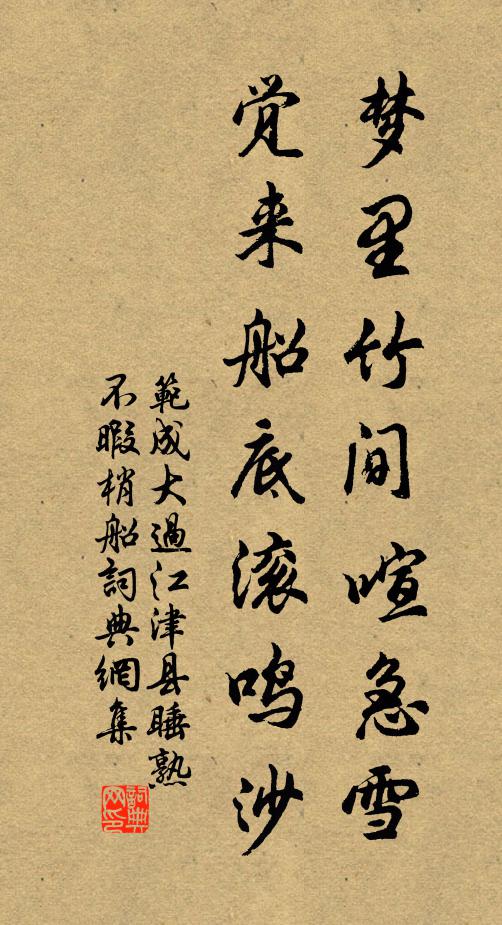 梦里竹间喧急雪
觉来船底滚鸣沙
範成大過江津县睡熟
不暇梢船詞典網集
詞典网印